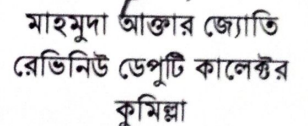 মাহমুদা আক্তার জ্যোতি
রেভিনিউ ডেপুটি কালেক্টর
কুমিল্লা